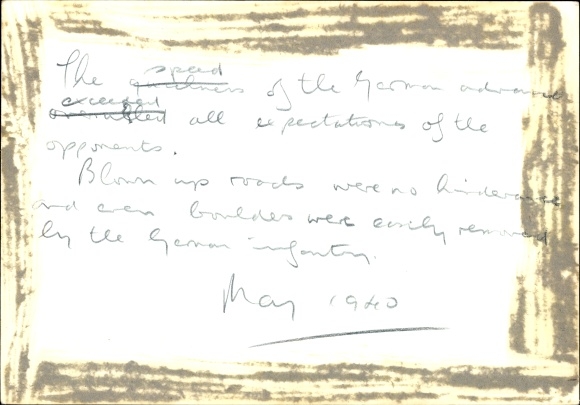 The speed quickness of the German advance
exceeded all expectations of the
opponents.
Blown up roads were no hinderance
and even boulders were easily removed
by the German infantry.
May 1940